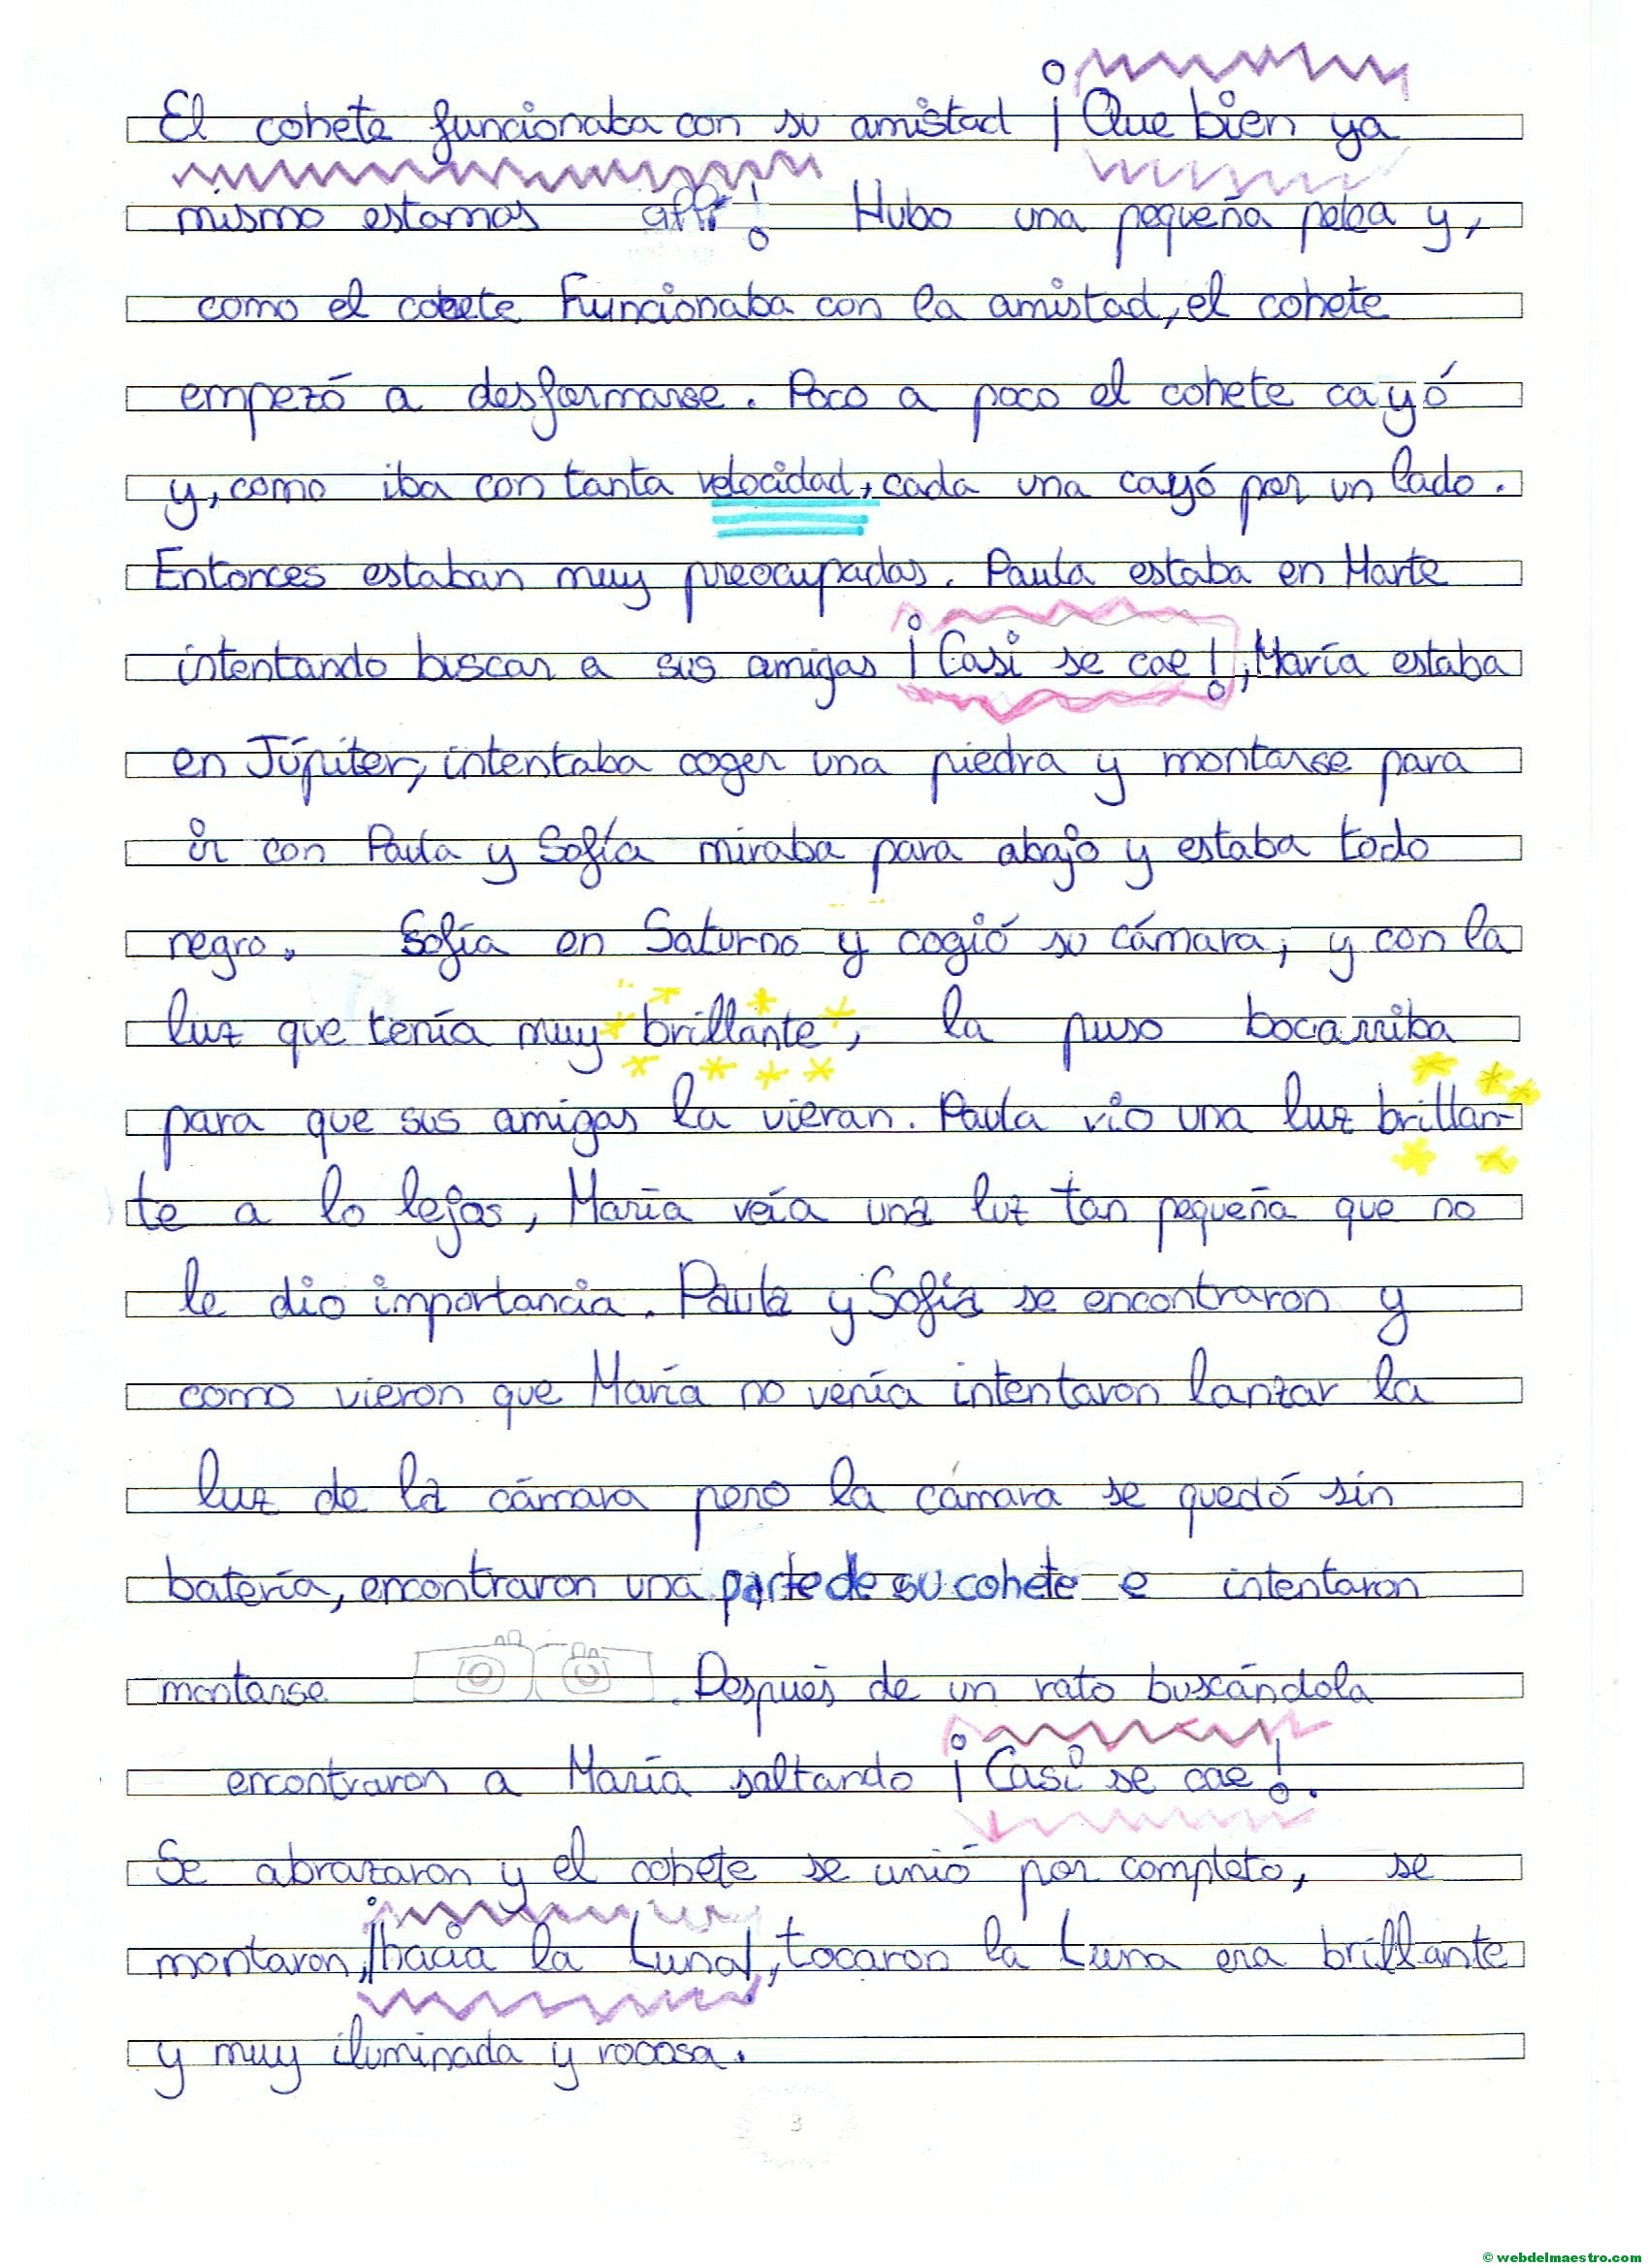 El cohete funcionaba con su amistad ¡Que bien ya
mismo estamos allí! Hubo una pequeña pelea y,
como el cohete funcionaba con la amistad, el cohete
empezó a desformarse. Poco a poco el cohete cayó
y, como iba con tanta velocidad, cada una cayó por un lado.
Entonces estaban muy preocupadas. Paula estaba en Marte
intentando buscar a sus amigas ¡Casi se cae!, María estaba
en Júpiter, intentaba coger una piedra y montarse para
ir con Paula y Sofía miraba para abajo y estaba todo
negro. Sofía en Saturno y cogió su cámara, y con la
luz que tenía muy brillante, la puso bocarriba
para que sus amigas la vieran. Paula vio una luz brillan-
te a lo lejos, María veía una luz tan pequeña que no
le dio importancia. Paula y Sofía se encontraron y
como vieron que María no venía intentaron lanzar la
luz de la cámara pero la cámara se quedó sin
batería, encontraron una parte de su cohete e intentaron
montarse . Después de un rato buscándola
encontraron a María saltando ¡Casi se cae!.
Se abrazaron y el cohete se unió por completo, se
montaron, ¡hacia la Luna!, tocaron la Luna era brillante
y muy iluminada y rocosa.
3
© webdelmaestro.com